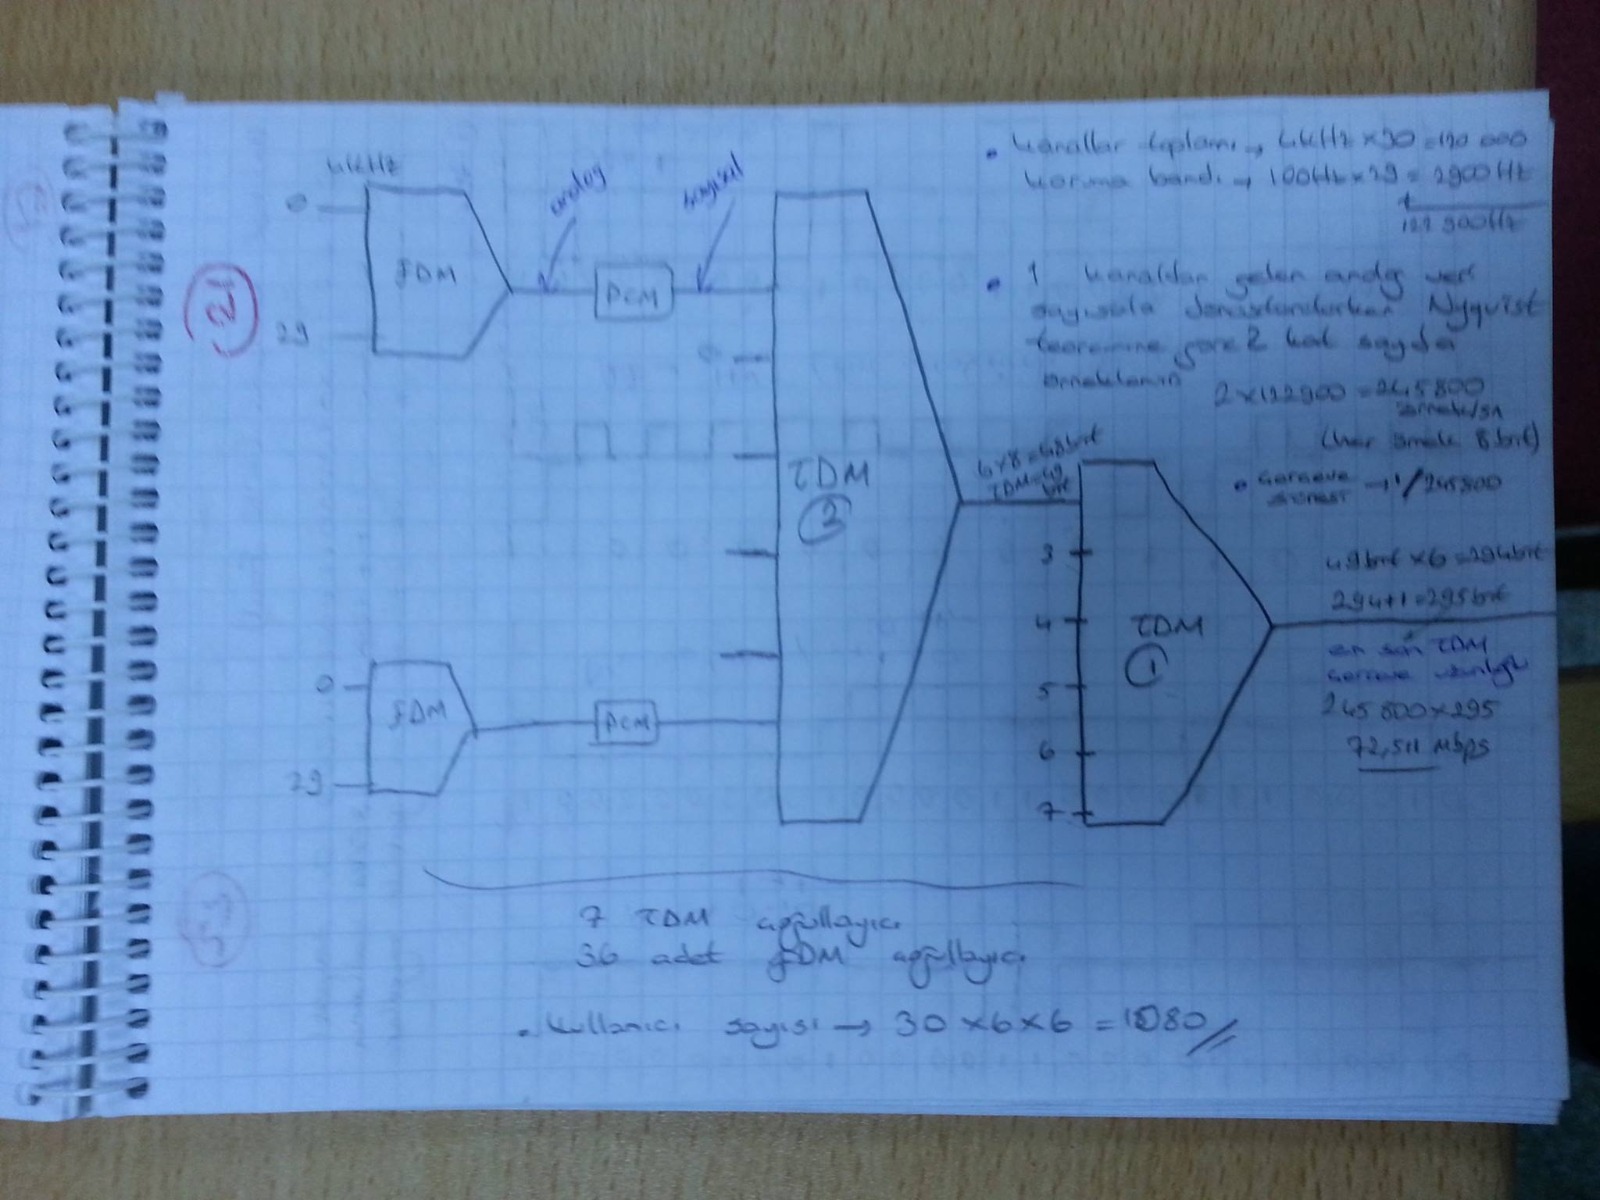 4kHz
0
FDM
29
analog
sayısal
PCM
TDM
2
0
FDM
29
PCM
6x8=48bit
TDM=49
bit
3
4
5
6
7
TDM
1
• Kanallar toplamı → 4kHz x30 =120 000
Koruma bandı → 100Hz x 29 = 2900 Hz
+
122 900Hz
• 1 kanaldan gelen analog veri
sayısala dönüştürülürken Nyquist
teoremine göre 2 kat sayıda
örneklenir
2 x 122900 = 245 800
örnek/sn
(her örnek 8 bit)
• çerçeve süresi → 1/245800
49bit x6 =294bit
294+1=295bit
en son TDM
çerçeve uzunluğu
245 800 x 295
72,511 Mbps
7 TDM çoğullayıcı
36 adet FDM çoğullayıcı
• Kullanıcı sayısı → 30 x 6 x 6 = 1080 //